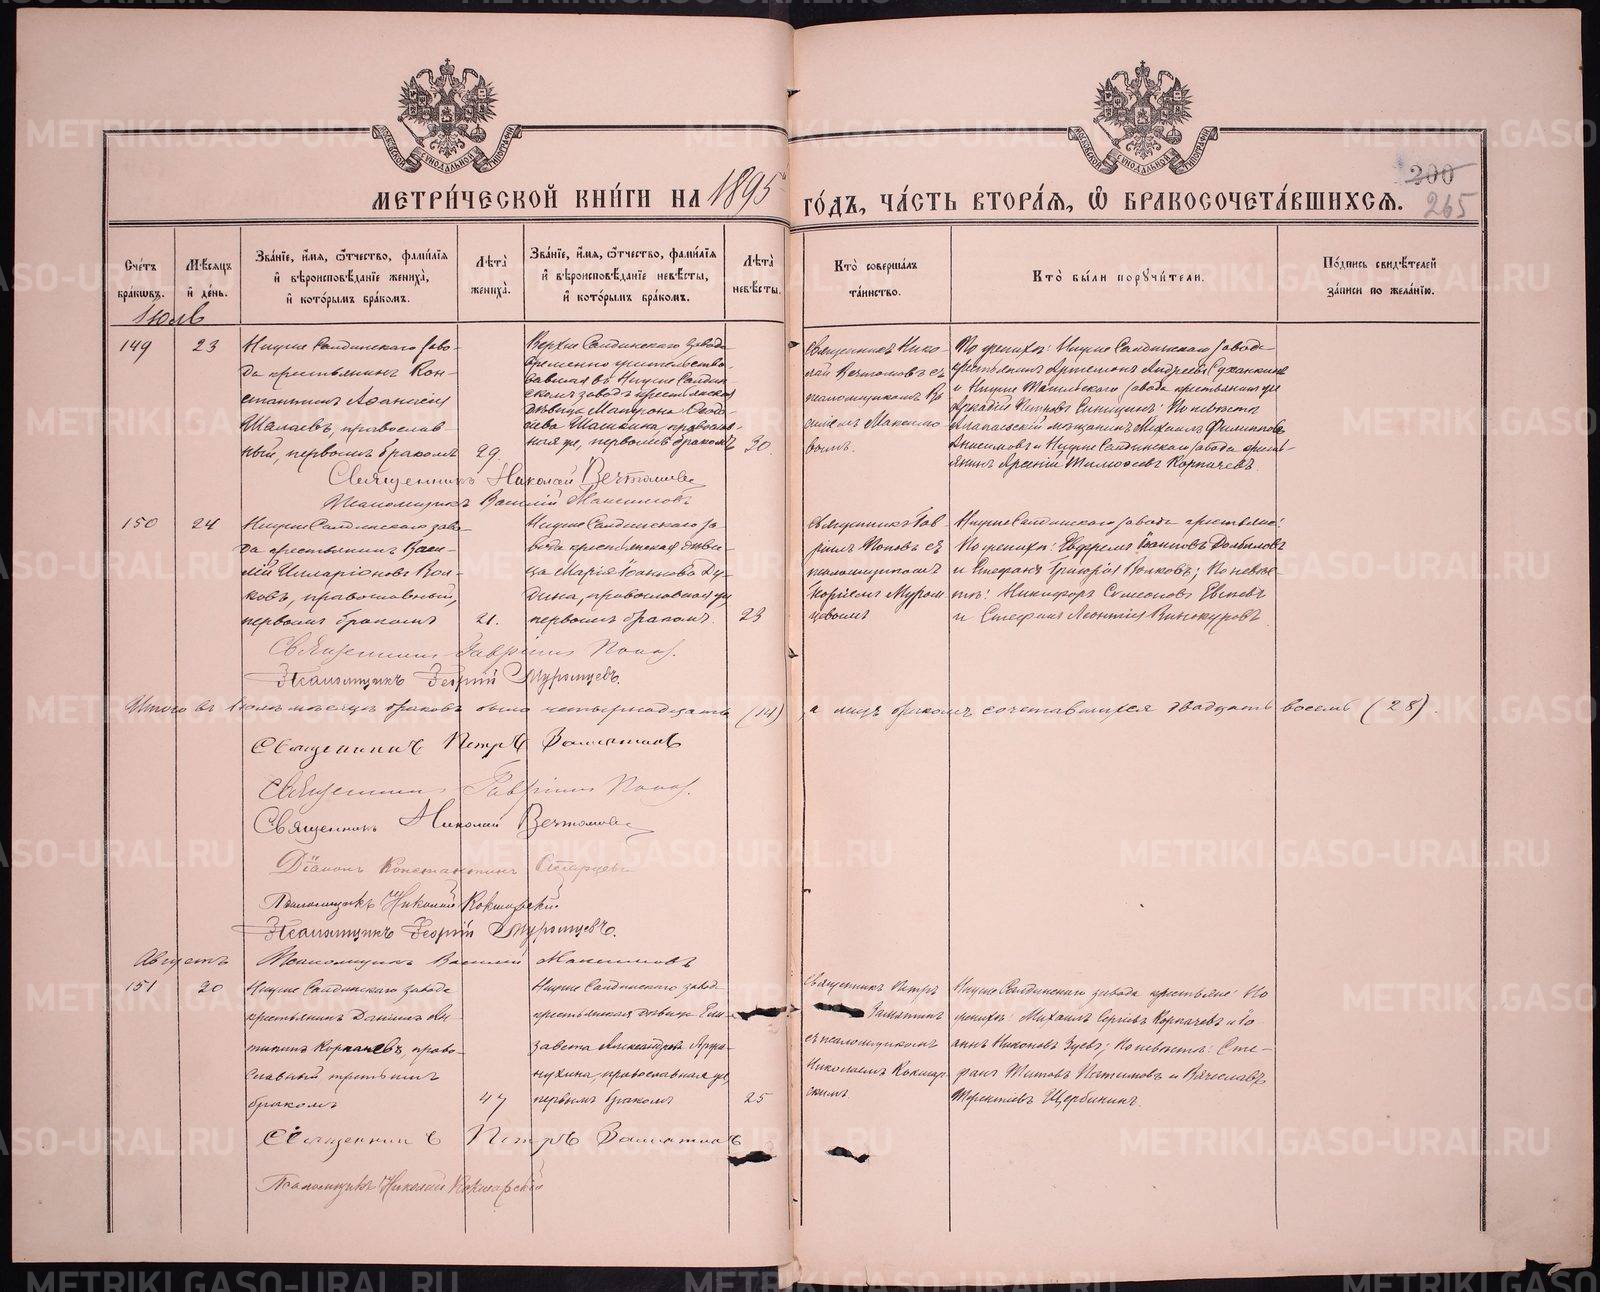 МЕТРИ́ЧЕСКОЙ КНИ́ГИ НА 1895 ГО́ДЪ, ЧА́СТЬ ВТОРА́Я, Ѿ БРАКОСОЧЕТА́ВШИХСЯ.
200
265
Сче́тъ бра́кωвъ.
Мѣ́сяцъ и́ де́нь.
Зва́нїе, и́мя, ѻ́тчество, фами́лїя и́ вѣроисповѣ́данїе жениха̀, и́ кото́рымъ бра́комъ.
Лѣ́та̀ жениха̀.
Зва́нїе, и́мя, ѻ́тчество, фами́лїя и́ вѣроисповѣ́данїе невѣ́сты, и́ кото́рымъ бра́комъ.
Лѣ́та̀ невѣ́сты.
Кто̀ соверша́лъ та́инство.
Кто̀ бы́ли порꙋчи́тели.
По́дпись свидѣ́телей за́писи по жела́нїю.
Іюль
149
23
Нижне Салдинскаго заво-
да крестьянинъ Кон-
стантинъ Аѳанасіевъ
Шалаевъ, православ-
ный, первымъ бракомъ
29
Верхне Салдинскаго завода
временно жительство-
вавшая въ Нижне Салдин-
скомъ заводѣ крестьянская
дѣвица Матрона
Шашкина, православ-
ная же, первымъ бракомъ
30
Священникъ Нико-
лай Вечтомовъ съ
псаломщикомъ Ва-
силіемъ Максимо-
вымъ.
По женихѣ: Нижне Салдинскаго завода
крестьянинъ Артемонъ Андреевъ
и Нижне Тагильскаго завода крестьянинъ же
Аркадій Петровъ Синицинъ: По невѣстѣ
Алапаевскій мѣщанинъ Михаилъ Филипповъ
Анисимовъ и Нижне Салдинскаго завода кресть-
янинъ Арсеній Корпачевъ
Священникъ Николай Вечтомовъ
Псаломщикъ Василій Максимовъ
150
24
Нижне Салдинскаго заво-
да крестьянинъ Васи-
лій Илларіоновъ Вол-
ковъ, православный,
первымъ бракомъ
21.
Нижне Салдинскаго за-
вода крестьянская дѣви-
ца Марія Іоаннова Ду-
дина, православная же,
первымъ бракомъ.
23
Священникъ Гав-
ріилъ Поповъ съ
псаломщикомъ
Георгіемъ Муром-
цевымъ
Нижне Салдинскаго завода крестьяне:
По женихѣ: Евфремъ Іоанновъ Долбиловъ
и Стефанъ Григорьевъ Волковъ; По невѣс-
тѣ: Никифоръ Симеоновъ Евсѣевъ
и Стефанъ Леонтіевъ Винокуровъ.
Священникъ Гавріилъ Поповъ.
Псаломщикъ Георгій Муромцевъ.
Итого въ Іюлѣ мѣсяцѣ браковъ было четырнадцать (14), а лицъ бракомъ сочетавшихся двадцать восемь (28).
Священникъ Петръ Замятинъ
Священникъ Гавріилъ Поповъ.
Священникъ Николай Вечтомовъ
Діаконъ Константинъ Старцевъ
Псаломщикъ Николай Кокшарскій
Псаломщикъ Георгій Муромцевъ.
Псаломщикъ Василій Максимовъ
Августъ
151
20
Нижне Салдинскаго завода
крестьянинъ Даніилъ Ан-
типинъ Корпачевъ, право-
славный третьимъ
бракомъ
47
Нижне Салдинскаго завода
крестьянская дѣвица Ели-
завета Александрова
православная же,
первымъ бракомъ
25
Священникъ Петръ
Замятинъ
съ псаломщикомъ
Николаемъ Кокшар-
скимъ.
Нижне Салдинскаго завода крестьяне: По
женихѣ: Михаилъ Сергіевъ Корпачевъ и Іо-
аннъ Никоновъ Зуевъ; По невѣстѣ: Сте-
фанъ Титовъ и Вячеславъ
Терентіевъ Щербининъ.
Священникъ Петръ Замятинъ
Псаломщикъ Николай Кокшарскій
METRIKI.GASO-URAL.RU